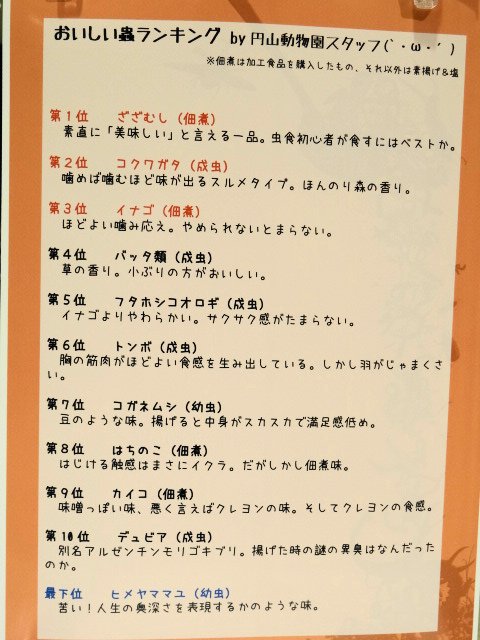 おいしい蟲ランキング by 円山動物園スタッフ(｀・ω・´)
※佃煮は加工食品を購入したもの、それ以外は素揚げ&塩
第1位 ざざむし（佃煮）
素直に「美味しい」と言える一品。虫食初心者が食すにはベストか。
第2位 コクワガタ（成虫）
噛めば噛むほど味が出るスルメタイプ。ほんのり森の香り。
第3位 イナゴ（佃煮）
ほどよい噛み応え。やめられないとまらない。
第4位 バッタ類（成虫）
草の香り。小ぶりの方がおいしい。
第5位 フタホシコオロギ（成虫）
イナゴよりやわらかい。サクサク感がたまらない。
第6位 トンボ（成虫）
胸の筋肉がほどよい食感を生み出している。しかし羽がじゃまくさ
い。
第7位 コガネムシ（幼虫）
豆のような味。揚げると中身がスカスカで満足感低め。
第8位 はちのこ（佃煮）
はじける触感はまさにイクラ。だがしかし佃煮味。
第9位 カイコ（佃煮）
味噌っぽい味、悪く言えばクレヨンの味。そしてクレヨンの食感。
第10位 デュビア（成虫）
別名アルゼンチンモリゴキブリ。揚げた時の謎の異臭はなんだった
のか。
最下位 ヒメヤママユ（幼虫）
苦い！人生の奥深さを表現するかのような味。